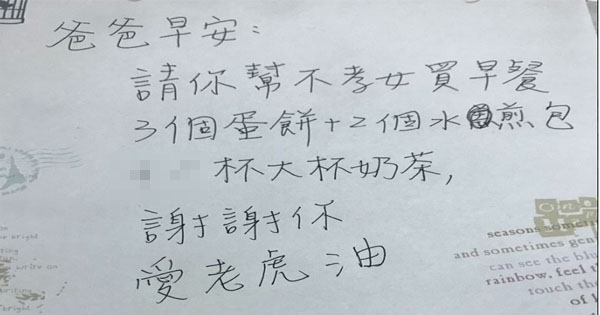 爸爸早安：
請你幫不孝女買早餐
3個蛋餅+2個水煎包
杯大杯奶茶，
謝謝你
愛老虎油
seasons
and sometimes gen
can see the blu
rainbow. feel t
touch th
of l